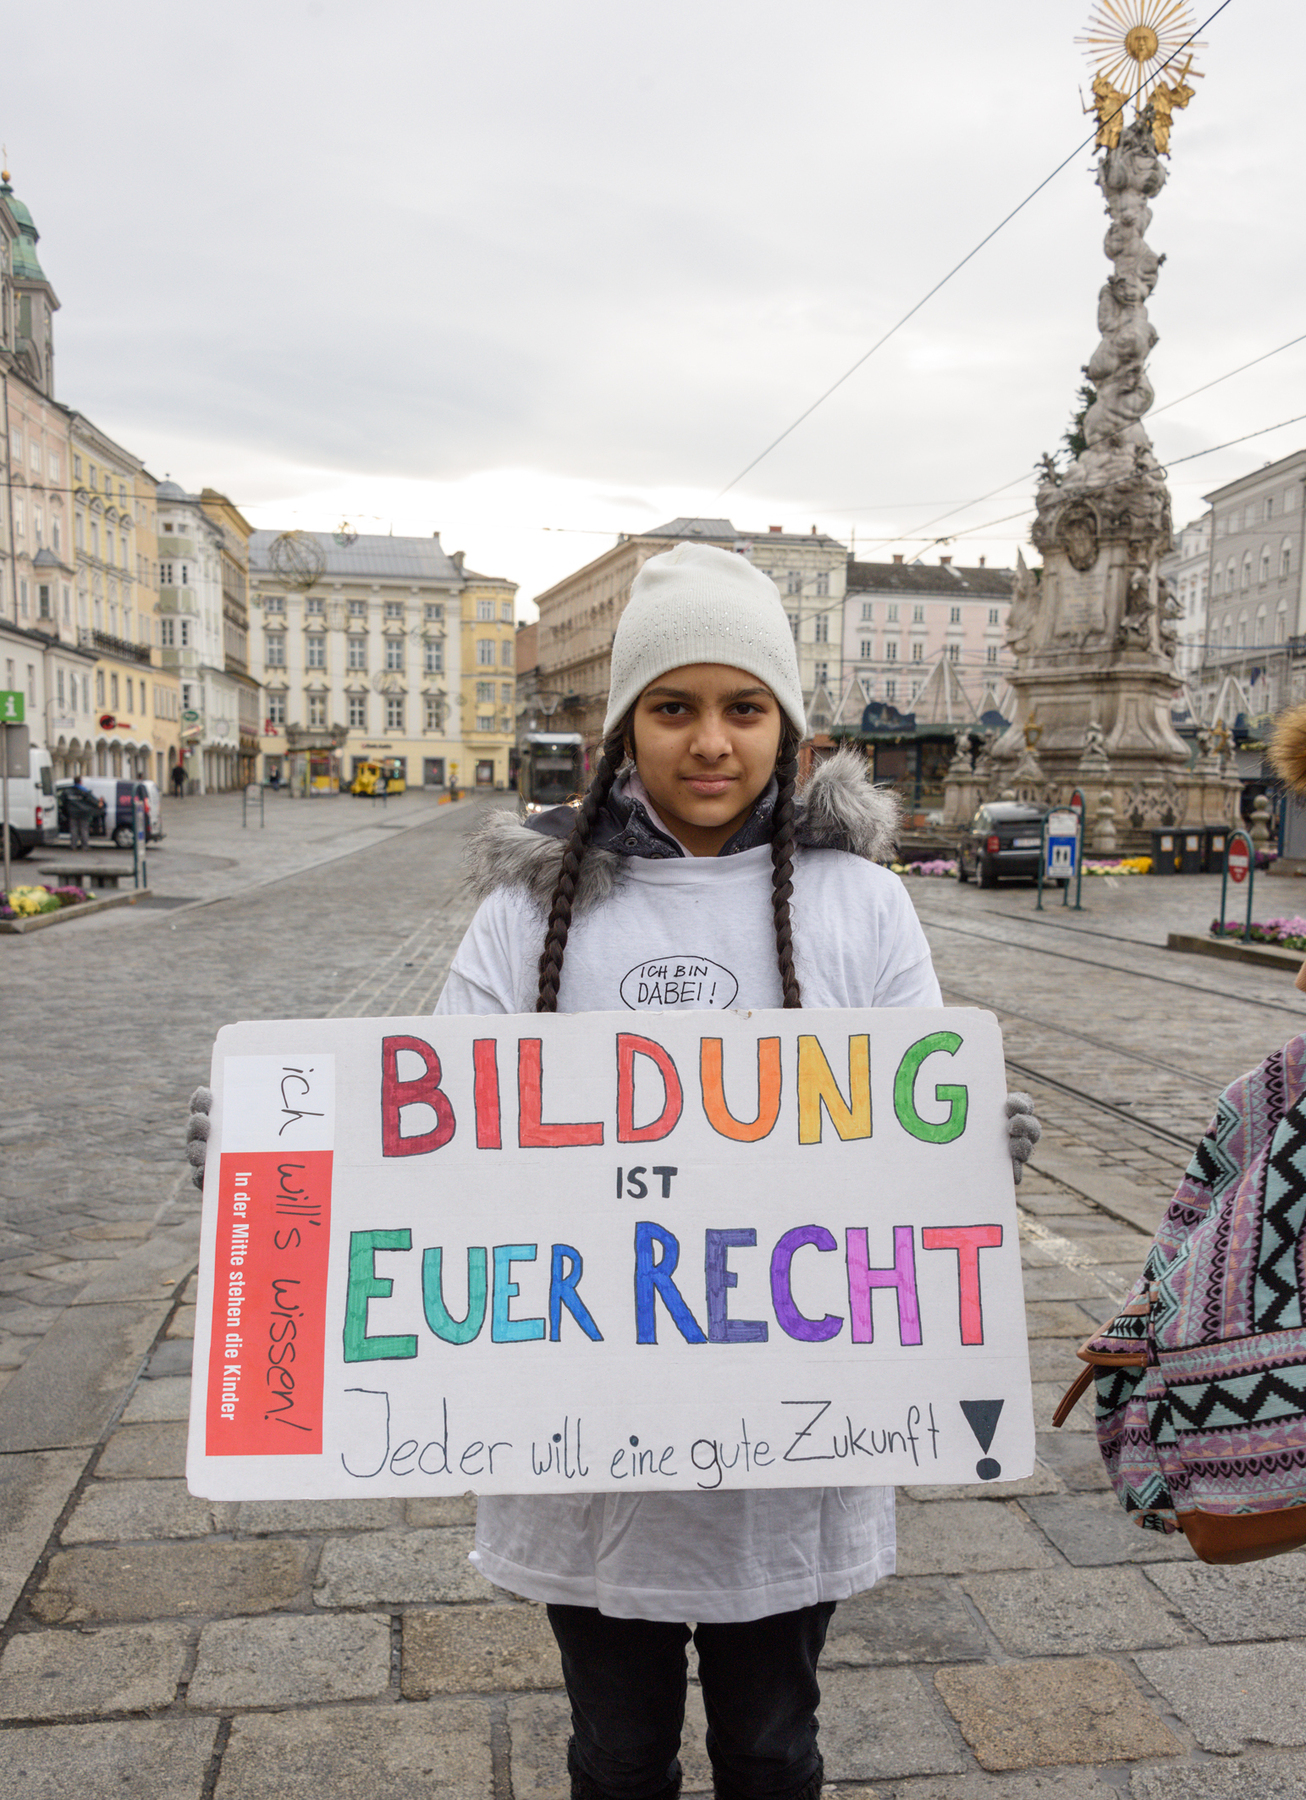 ICH BIN
DABEI!
BILDUNG
IST
EUER RECHT
Jeder will eine gute Zukunft!
ich will's wissen!
In der Mitte stehen die Kinder
i